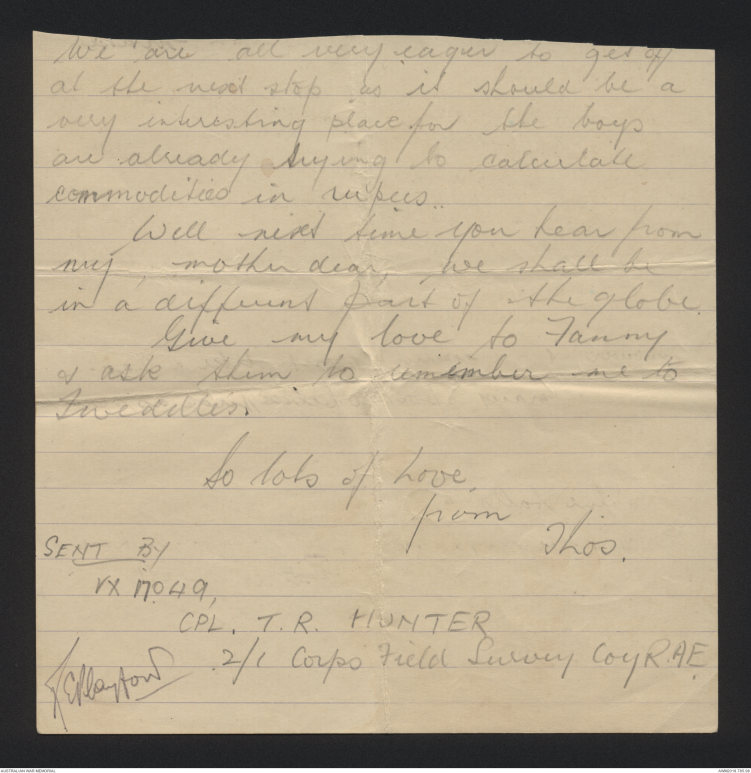 We are all very eager to get off
at the next stop as it should be a
very interesting place for the boys
are already trying to calculate
commodities in rupees.
Well next time you hear from
my, mother dear, we shall be
in a different part of the globe.
Give my love to Fanny
& ask them to remember me to
Tweddles.
So lots of Love
from
Thos.
SENT BY
VX 17049,
CPL. T. R. HUNTER
2/1 Corps Field Survey Coy R.A.E.
AUSTRALIAN WAR MEMORIAL